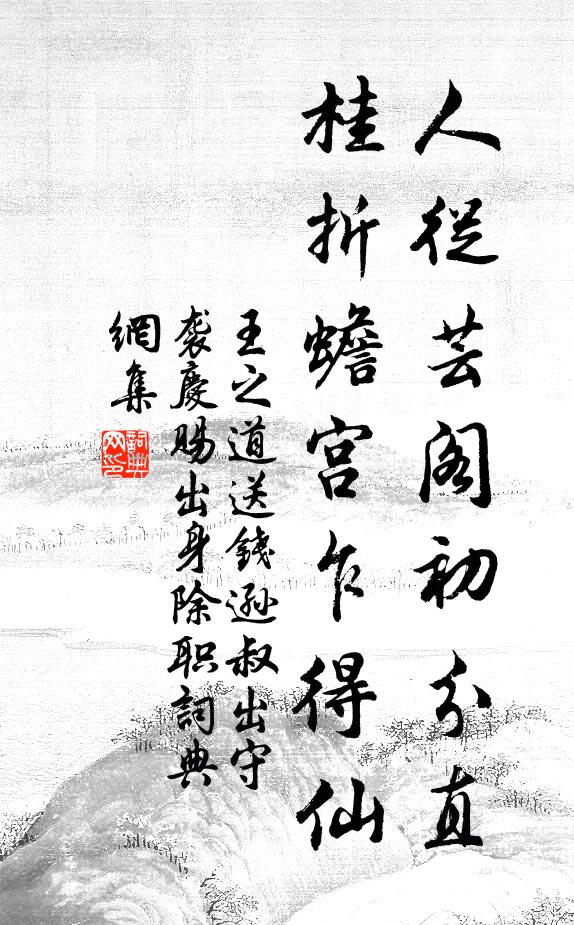 人從芸阁初分直
桂折蟾宮乍得仙
王之道送錢遜叔出守
袭慶賜出身除职詞典
網集
詞典
网印